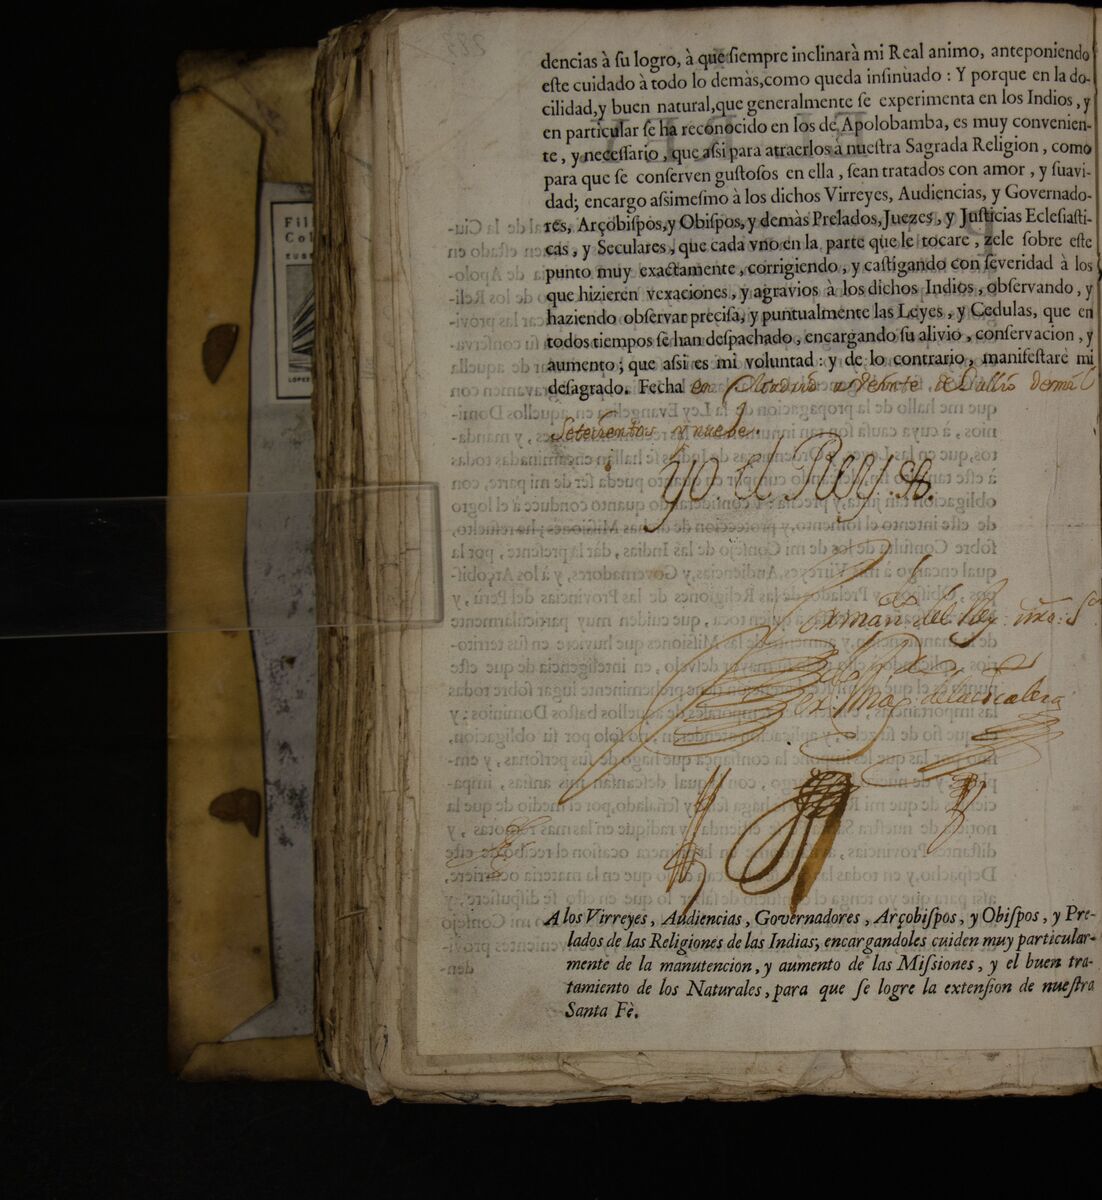 dencias à ſu logro, à que ſiempre inclinarà mi Real animo, anteponiendo
eſte cuidado à todo lo demàs, como queda inſinuado : Y porque en la do-
cilidad, y buen natural, que generalmente ſe experimenta en los Indios, y
en particular ſe ha reconocido en los de Apolobamba, es muy convenien-
te, y neceſſario, que aſsi para atraerlos à nueſtra Sagrada Religion, como
para que ſe conſerven guſtoſos en ella, ſean tratados con amor, y ſuavi-
dad; encargo aſsimeſmo à los dichos Virreyes, Audiencias, y Governado-
res, Arçobiſpos, y Obiſpos, y demàs Prelados, Juezes, y Juſticias Ecleſiaſti-
cas, y Seculares, que cada vno en la parte que le tocare, zele ſobre eſte
punto muy exactamente, corrigiendo, y caſtigando con ſeveridad à los
que hizieren vexaciones, y agravios à los dichos Indios, obſervando, y
haziendo obſervar preciſa, y puntualmente las Leyes, y Cedulas, que en
todos tiempos ſe han deſpachado, encargando ſu alivio, conſervacion, y
aumento; que aſsi es mi voluntad: y de lo contrario, manifeſtarè mi
deſagrado. Fecha en Madrid a Veinte de Jullio de mil
Setecientos y nuebe.
Yo el Rey
Por mandº del Rey nro. Sr
A los Virreyes, Audiencias, Governadores, Arçobiſpos, y Obiſpos, y Pre-
lados de las Religiones de las Indias, encargandoles cuiden muy particular-
mente de la manutencion, y aumento de las Miſsiones, y el buen tra-
tamiento de los Naturales, para que ſe logre la extenſion de nueſtra
Santa Fè.